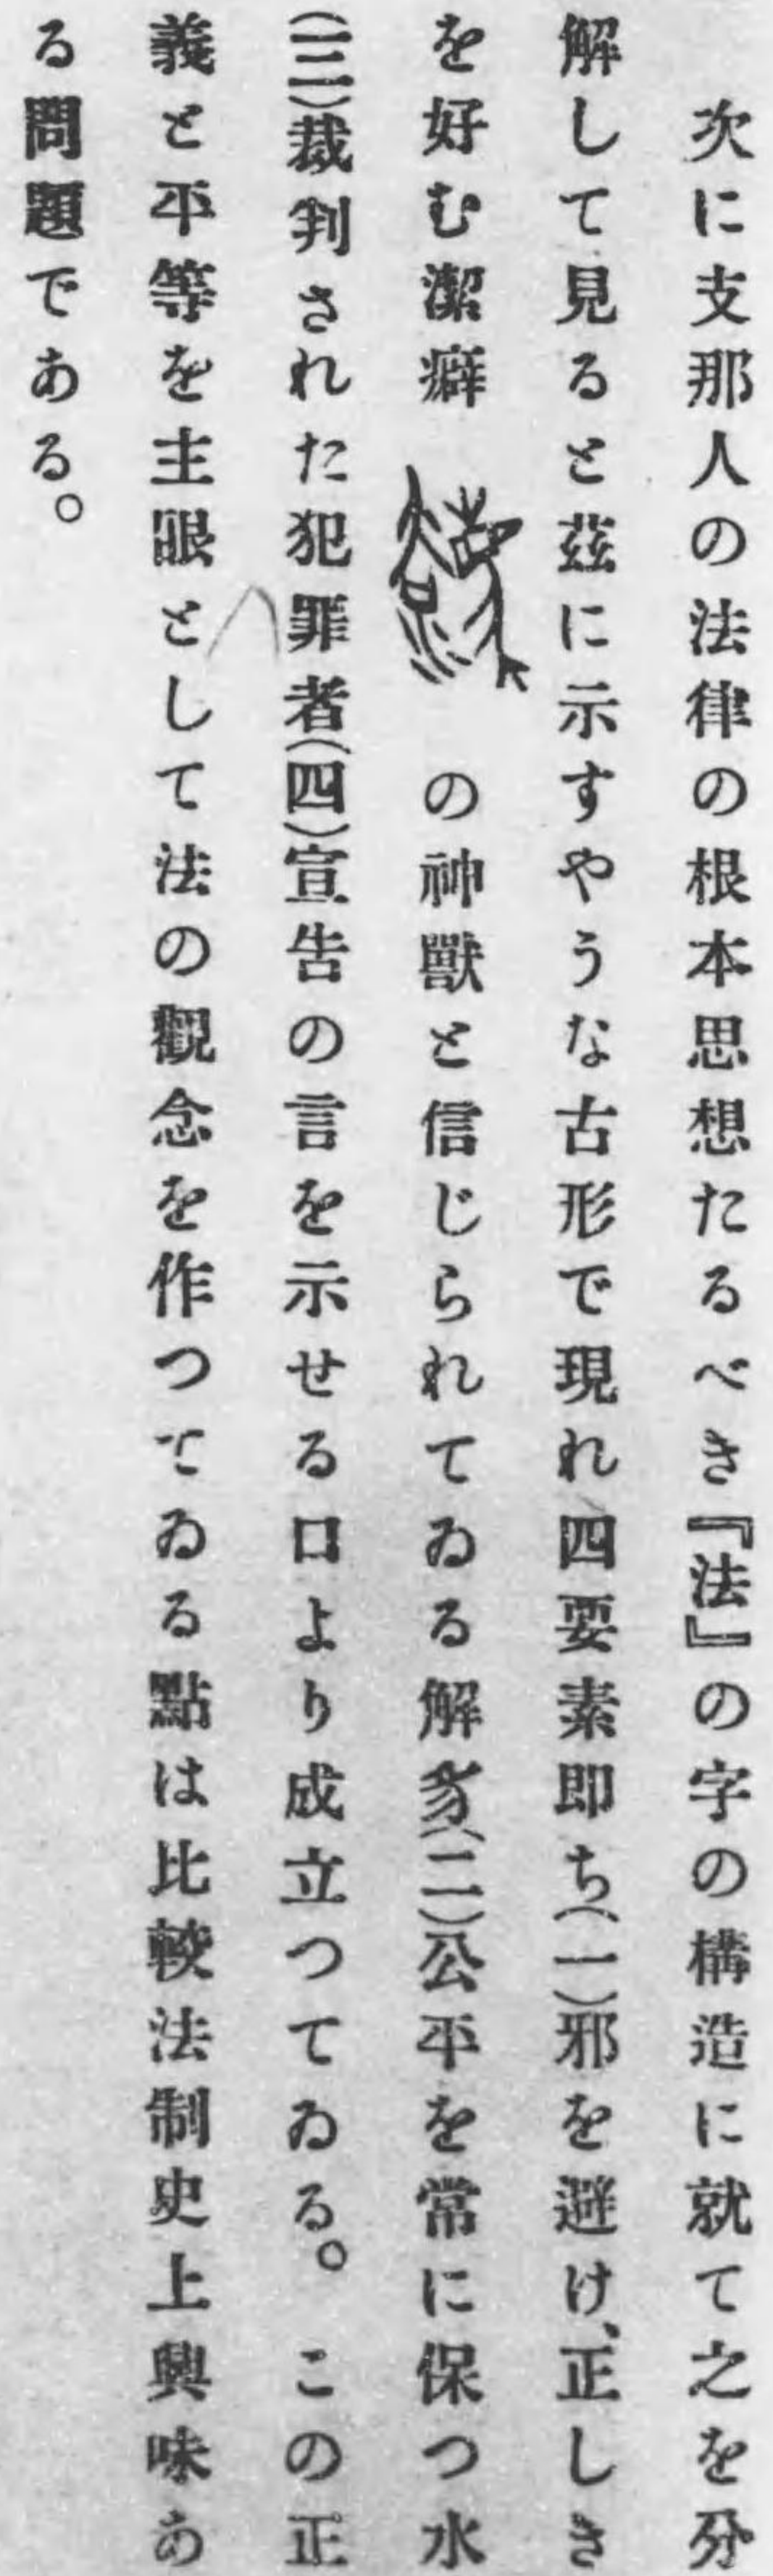 次に支那人の法律の根本思想たるべき『法』の字の構造に就て之を分
解して見ると茲に示すやうな古形で現れ四要素即ち(一)邪を避け、正しき
を好む潔癖の神獸と信じられてゐる解豸(二)公平を常に保つ水
(三)裁判された犯罪者(四)宣告の言を示せる口より成立つてゐる。この正
義と平等を主眼として法の觀念を作つてゐる點は比較法制史上興味あ
る問題である。